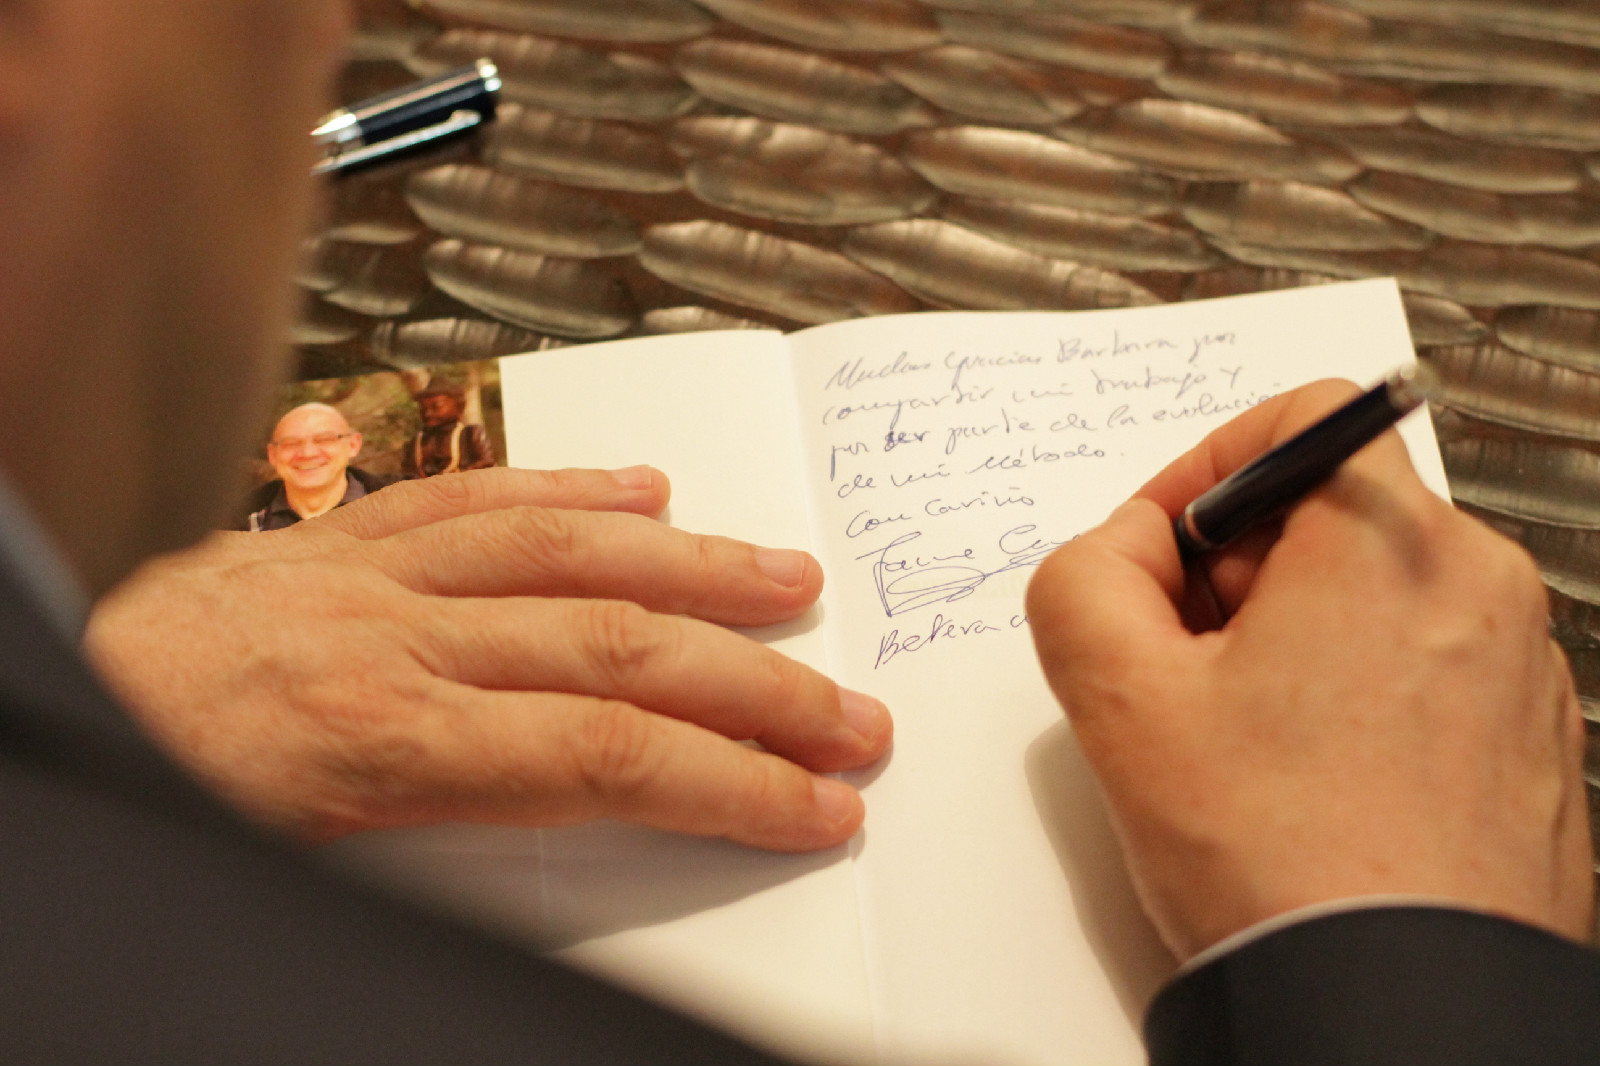 Muchas gracias Barbara por
compartir mi trabajo y
por ser parte de la evolución
de mi Método.
Con Cariño
Jaime
Betera a